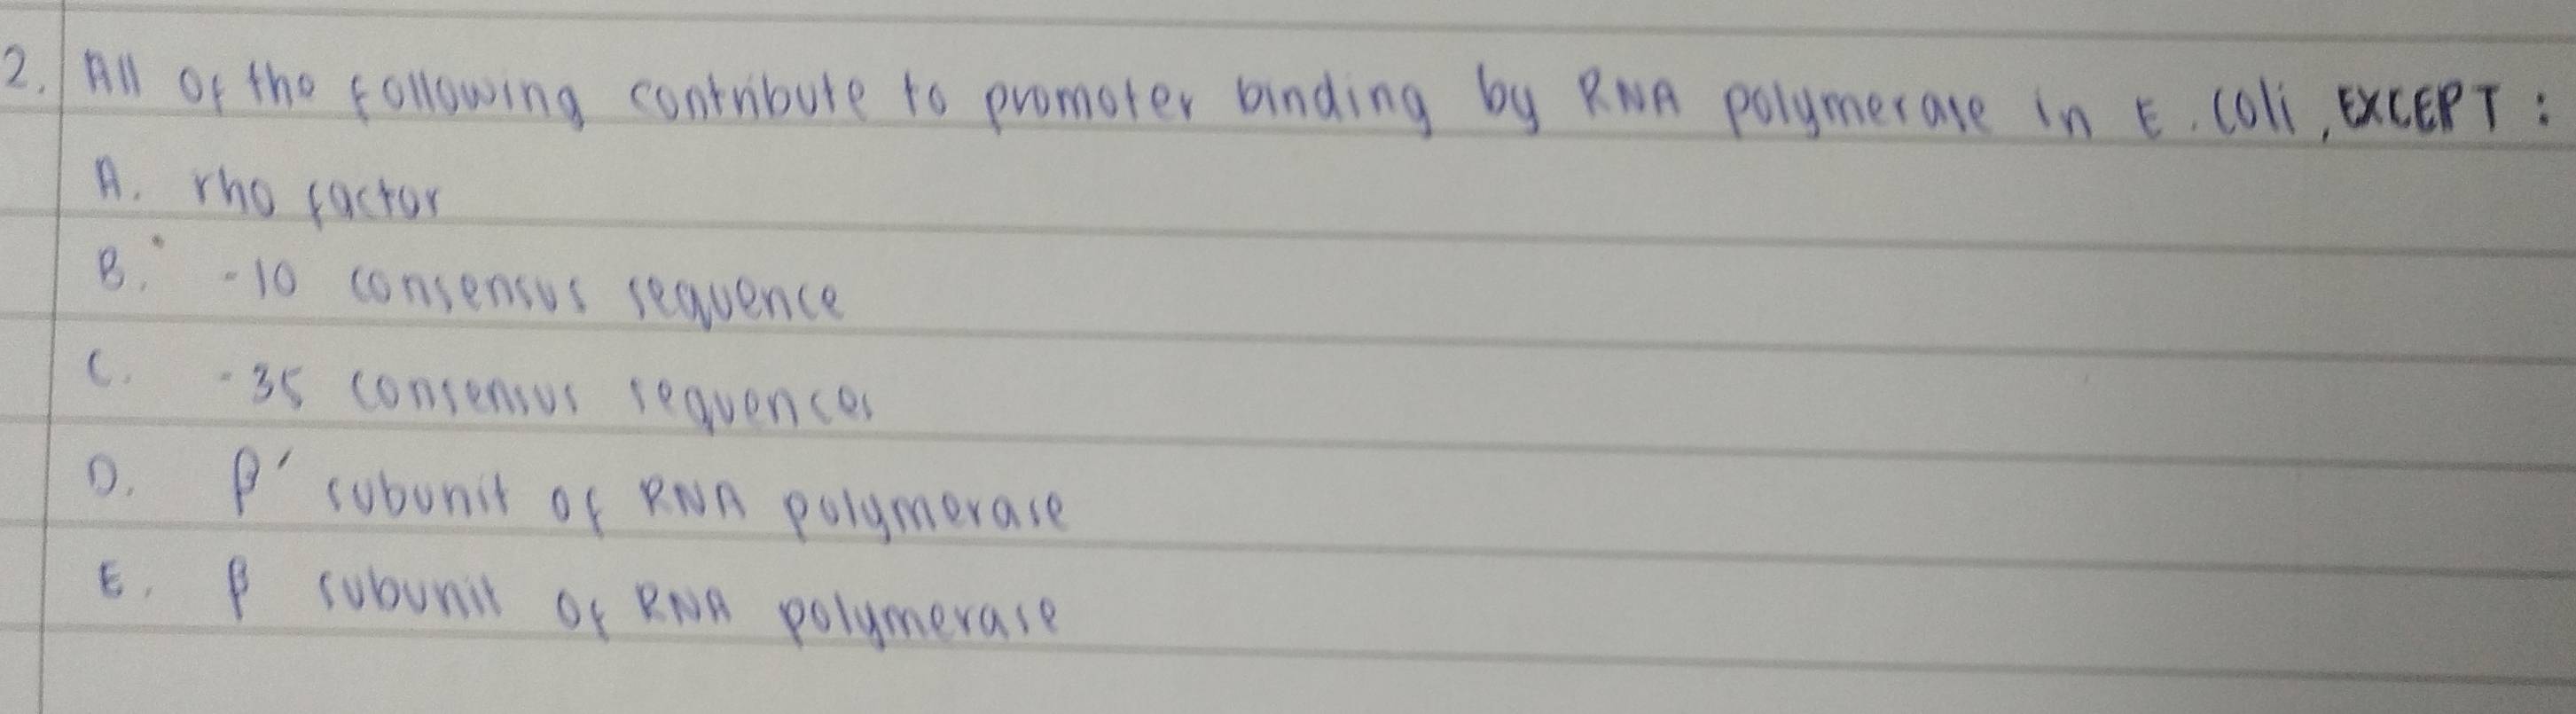 2. All of the following contribute to promoter binding by RNA polymerase in E. coli, EXCEPT:
A. rho factor
B. -10 consensus sequence
C. -35 consensus sequences
D. β' subunit of RNA polymerase
E. β subunit of RNA polymerase